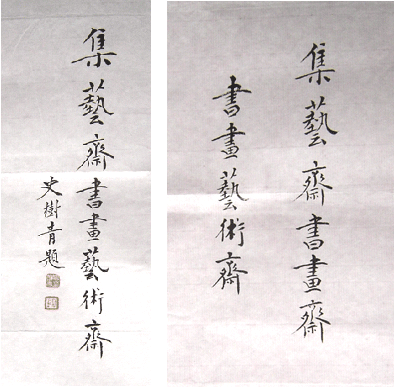 集藝齋書畫藝術齋
史樹青題
集藝齋書畫齋
書畫藝術齋